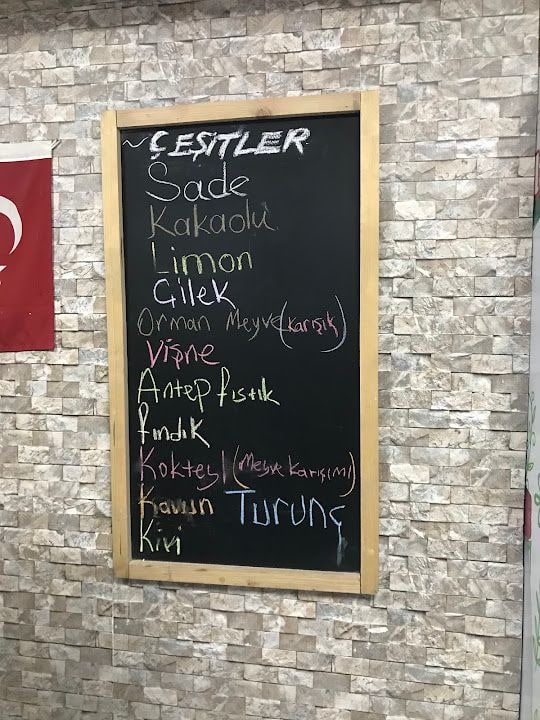 ÇEŞİTLER
Sade
Kakaolu
Limon
Çilek
Orman Meyve (karışık)
Vişne
Antep fıstık
fındık
Kokteyl (Meyve karışımı)
Kavun Turunç
Kivi